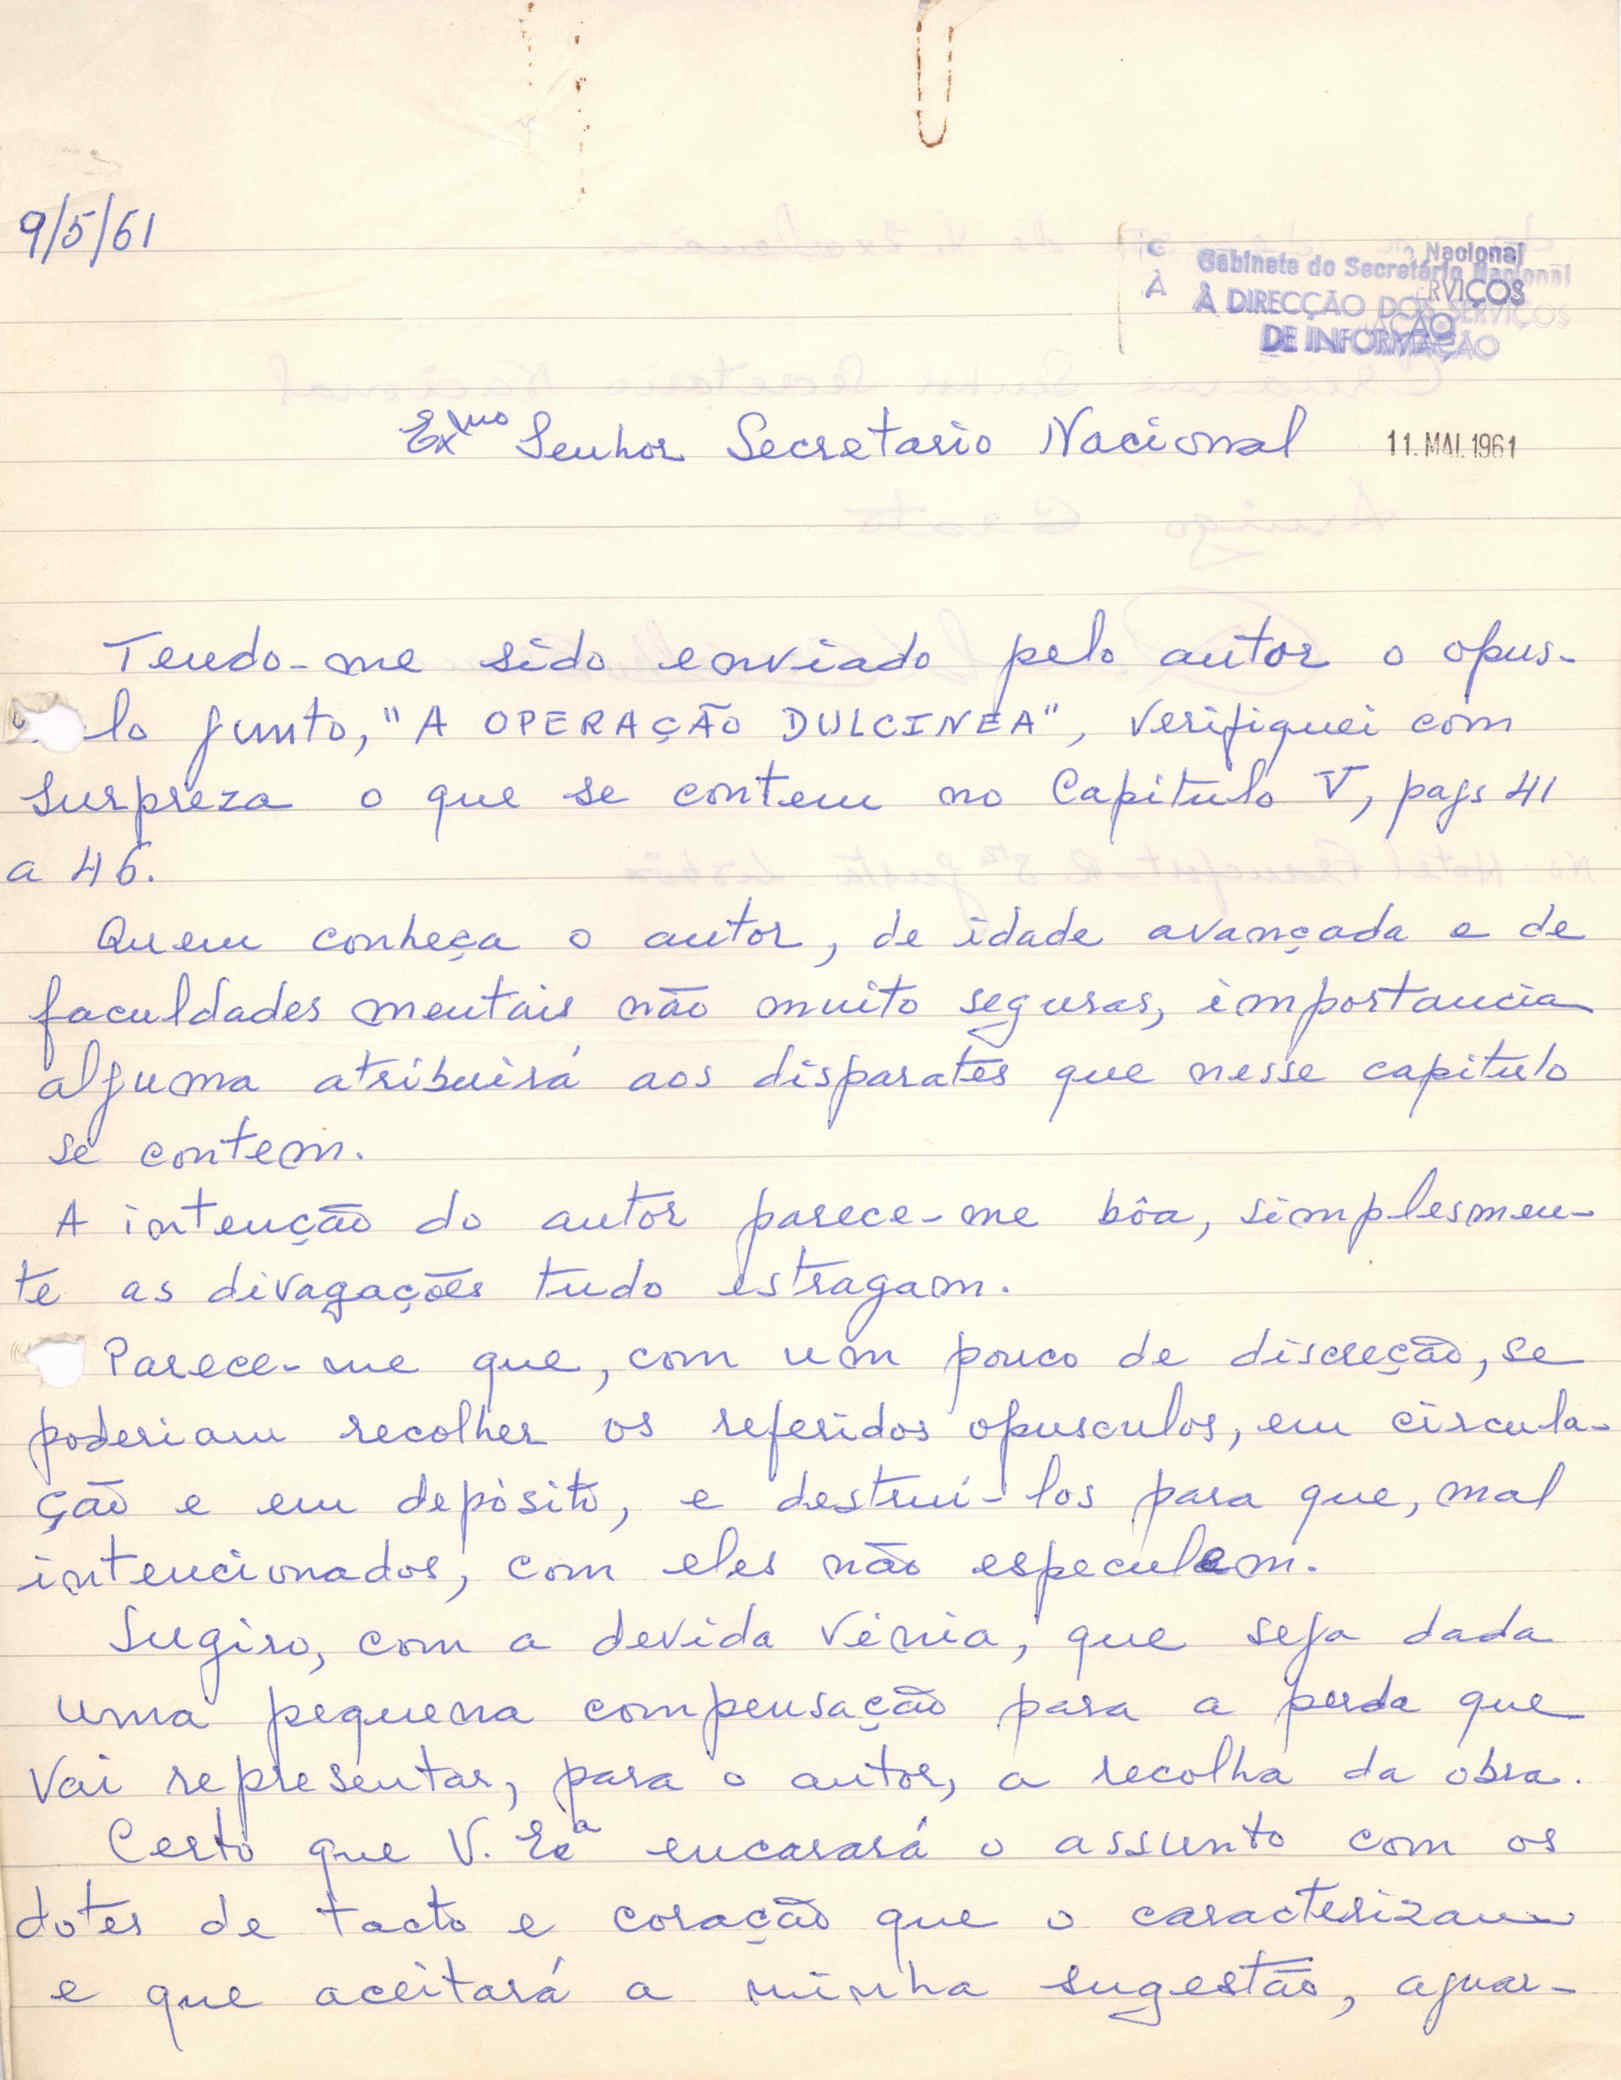 9/5/61
Gabinete do Secretário Nacional
À DIRECÇÃO DOS SERVIÇOS
DE INFORMAÇÃO
Exmo Senhor Secretario Nacional
11. MAI. 1961
Tendo-me sido enviado pelo autor o opus-
lo junto, "A OPERAÇÃO DULCINEA", verifiquei com
surpreza o que se contem no Capitulo V, pags 41
a 46.
Quem conheça o autor, de idade avançada e de
faculdades mentais não muito seguras, importancia
alguma atribuirá aos disparates que nesse capitulo
se contem.
A intenção do autor parece-me bôa, simplesmen-
te as divagações tudo estragam.
Parece-me que, com um pouco de discreção, se
poderiam recolher os referidos opusculos, em circula-
ção e em depòsito, e destruí-los para que, mal
intencionados, com eles não especulem.
Sugiro, com a devida vénia, que seja dada
uma pequena compensação para a perda que
vai representar, para o autor, a recolha da obra.
Certo que V. Exa encarará o assunto com os
dotes de tacto e coração que o caracterizam
e que aceitará a minha sugestão, aguar-